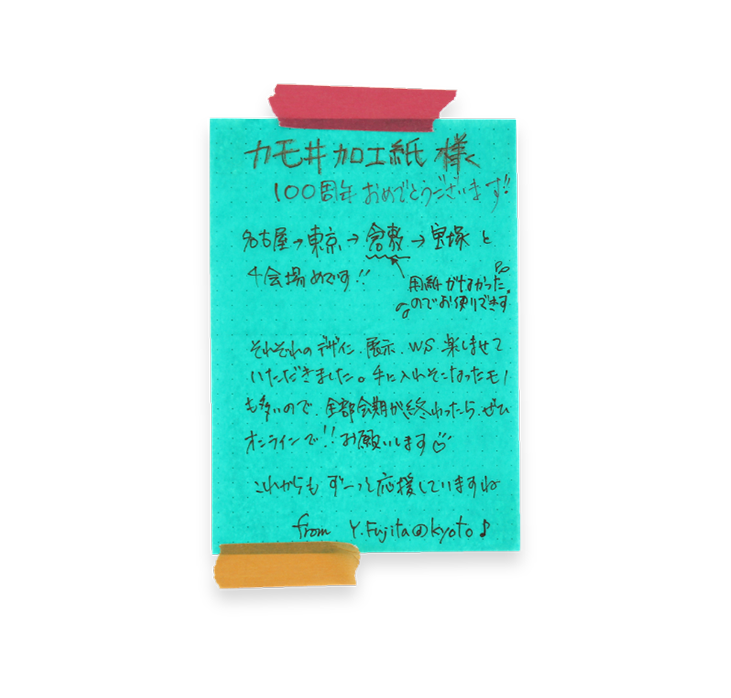 カモ井加工紙 様
100周年おめでとうございます!!
名古屋→東京→倉敷→宝塚と
4会場めです!!
用紙がなかった
のでお便りできず
それぞれのデザイン、展示、WS、楽しませて
いただきました。手に入れそこなったモノ
も多いので、全部会期が終わったら、ぜひ
オンラインで!!お願いします
これからもずーっと応援していますね
from Y.Fujita@kyoto♪